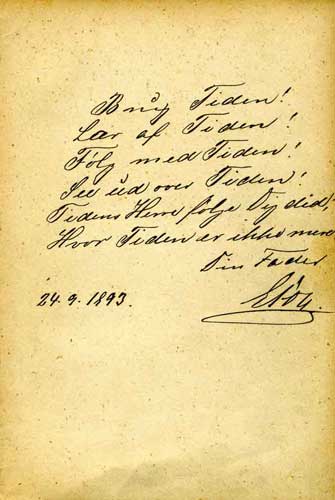 Brug Tiden!
Lær af Tiden!
Følg med Tiden!
See ud over Tiden!
Tidens Herre følge Dig did,
Hvor Tiden er ikke mere
Din Fader
24.9.1893.